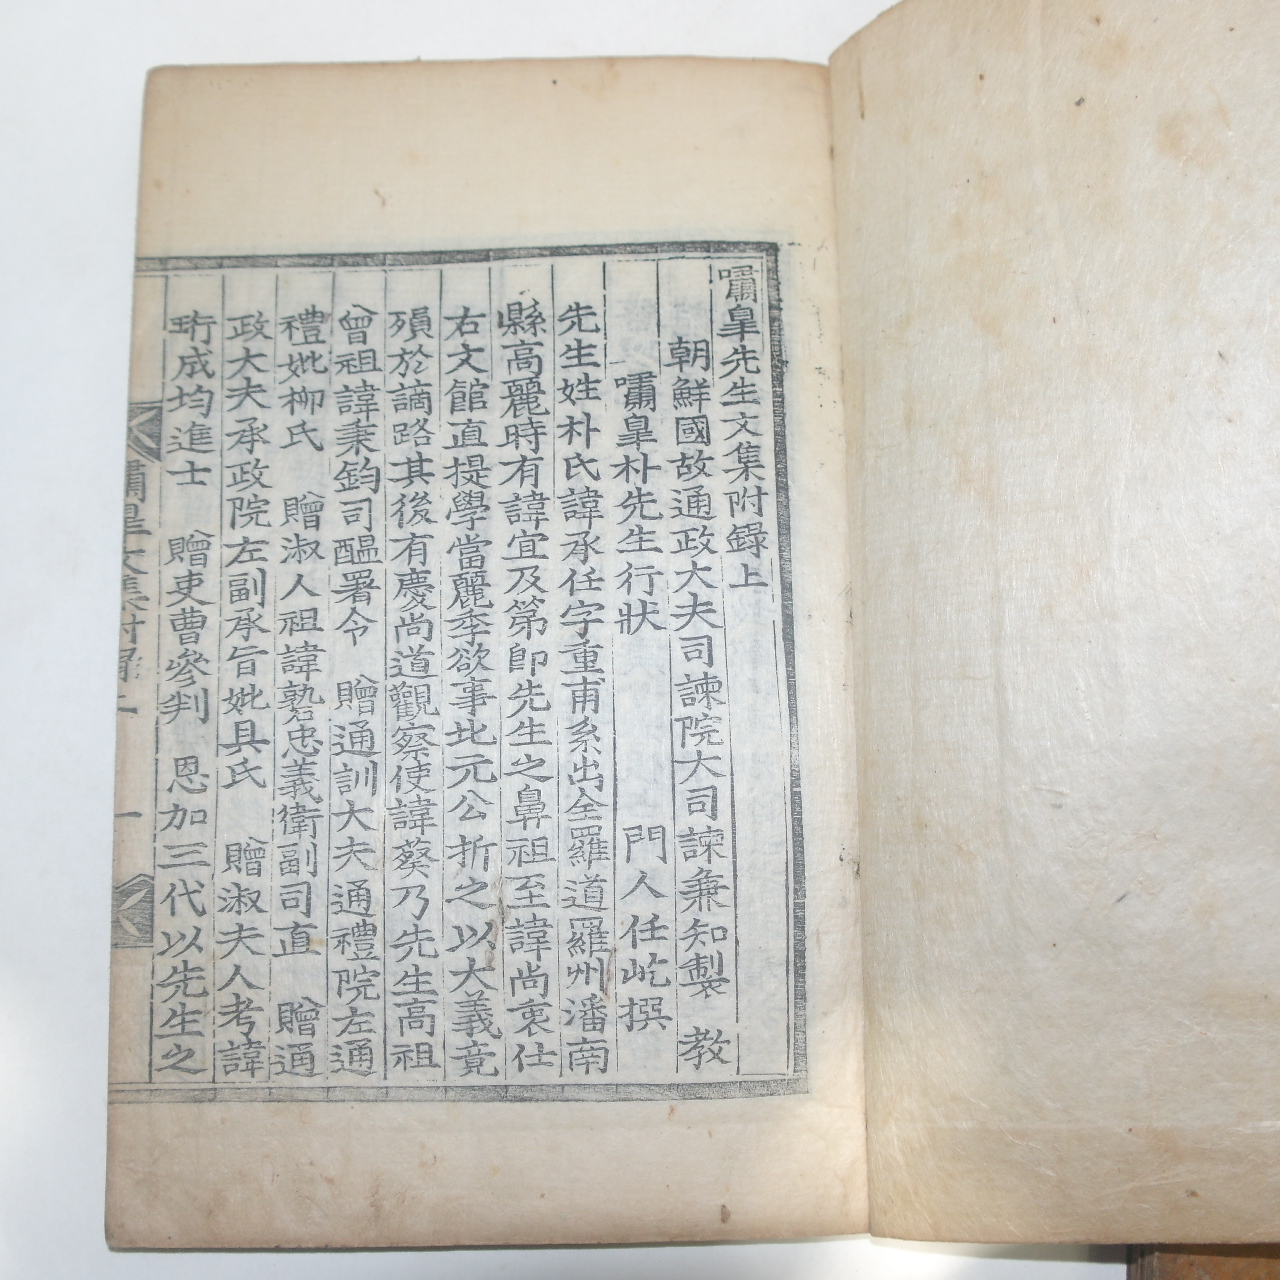 嘯皐先生文集附錄上
朝鮮國故通政大夫司諫院大司諫兼知製 教
嘯皐朴先生行狀 門人任屹撰
先生姓朴氏諱承任字重甫系出全羅道羅州潘南
縣高麗時有諱宜及第卽先生之鼻祖至諱尚衷仕
右文館直提學當麗季欲事北元公折之以大義竟
殞於謫路其後有慶尚道觀察使諱葵乃先生高祖
曾祖諱秉鈞司醞署令 贈通訓大夫通禮院左通
禮妣柳氏 贈淑人祖諱塾忠義衛副司直 贈通
政大夫承政院左副承旨妣具氏 贈淑夫人考諱
珩成均進士 贈吏曹參判 恩加三代以先生之
嘯皐文集附錄上 一